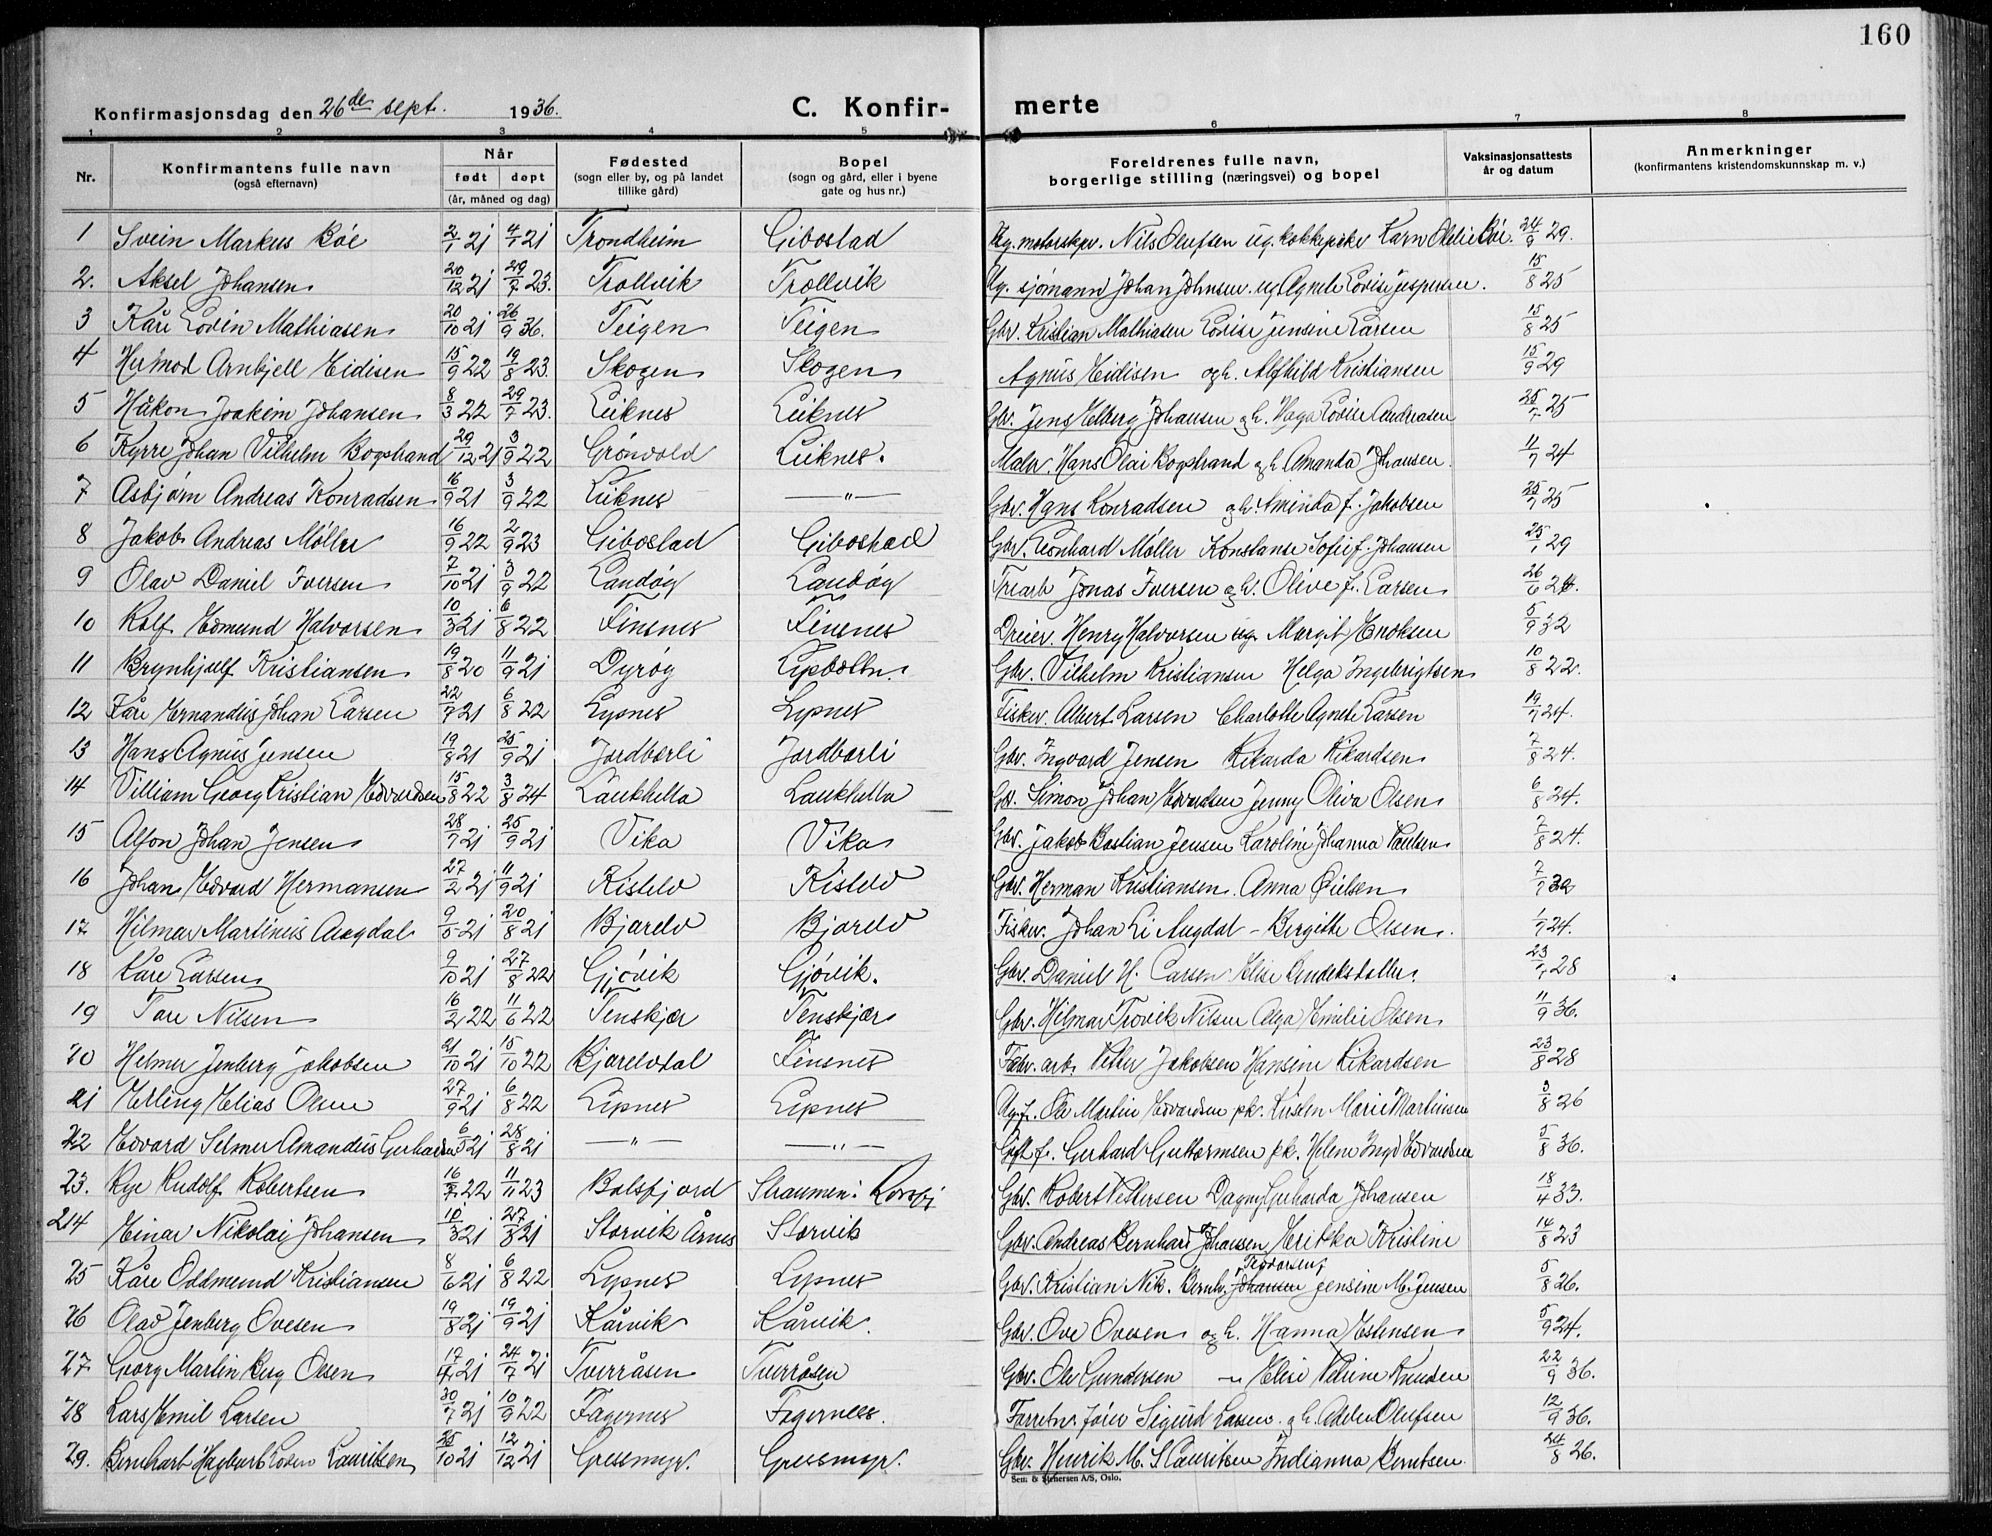 160
Konfirmasjonsdag den 26de sept. 1936.
C. Konfirmerte
1 2 3 4 5 6 7 8
Nr. Konfirmantens fulle navn (også efternavn) Når født døpt (år, måned og dag) Fødested (sogn eller by, og på landet tillike gård) Bopel (sogn og gård, eller i byene gate og hus nr.) Foreldrenes fulle navn, borgerlige stilling (næringsvei) og bopel Vaksinasjonsattests år og datum Anmerkninger (konfirmantens kristendomskunnskap m. v.)
1 Svein Markus Bóe 2/1 21 4/1 21 Trondheim Gibostad Ug. motorskpr. Nils Olufsen ug. kokkepike Karn Bóe. 24/9 29.
2. Aksel Johansen 20/12 21 29/7 23. Trollvik Trollvik Ug. sjømann Johan Johnsen ug Agnete Lovise Jespersen. 15/8 25
3 Kåre Edvin Mathiasen 20/10 21 26/9 36. Teigen Teigen Gbr. Kristian Mathiasen Lovise Jensine Larsen 15/8 25
4 Hermod Arnkjell Eidisen 15/9 22 19/8 23. Skogen Skogen Agnus Eidisen og h. Alfhild Kristiansen 15/9 29
5 Håkon Joakim Johansen 8/3 22 29/7 23. Leiknes Leiknes Gbr. Jens Elberg Johansen og h. Haga Lovise Andreasen 25/7 25
6 Kyrre Johan Vilhelm Bogstrand 29/12 21 3/9 22 Grönvold Leiknes. Maler. Hans Olai Bogstrand og h. Amanda Johansen 11/7 24
7 Asbjørn Andreas Konradsen 16/9 21 3/9 22 Leiknes —"— Gbr. Hans Konradsen og h. Aminda f. Jakobsen 25/7 25
8 Jakob Andreas Møller 16/9 22 2/9 23 Gibostad Gibostad Gbr. Leonhard Møller Konstanse Sofie f. Johansen 25/1 29
9 Olav Daniel Iversen 7/10 21 3/9 22 Landøg Landøg Triarb Jonas Iversen og h. Olive f. Larsen 26/6 24.
10 Rolf Edmund Halvorsen 10/3 21 6/8 22 Finsnes Finsnes Dreier. Henry Halvorsen ug. Margit Enoksen 5/9 32
11 Brynhjulf Kristiansen 19/8 20 11/9 21 Dyrög Gbr. Vilhelm Kristiansen Helga Ingebrigtsen 10/8 22.
12 Kåre Ernandus Johan Larsen 22/7 21 6/8 22 Lysnes Lysnes Fisker. Albert Larsen Charlotte Agnete Larsen 19/7 24.
13 Hans Agnus Jensen 19/8 21 25/9 21 Jordbærli Jordbærli Gbr. Ingvard Jensen Rikarda Rikardsen 7/8 24.
14 Villiam Georg Kristian Edvardsen 15/8 22 3/8 24 Laukhella Laukhella Gbr. Simon Johan Edvardsen Jenny Oliva Olsen 6/8 24.
15 Alfon Johan Jensen 28/7 21 25/9 21 Vika Vika Gbr. Jakob Bastian Jensen Karoline Johanna Paulsen 7/8 24.
16 Johan Edvard Hermansen 27/2 21 11/9 21 Kistelv Kistelv Gbr. Herman Kristiansen. Anna Øielsen 7/7 32
17 Hilmar Martinus Augdal 9/5 21 20/8 21 Bjorelv Bjorelv Fisker. Johan Li Augdal - Bergitte Olsen. 1/9 24.
18 Kåre Larsen 9/10 21 27/8 22 Gjövik Gjövik. Gbr. Daniel H. Larsen Elise 23/1 28
19 Tore Nilsen 16/2 22 11/6 22 Tenskjær Tenskjær Gbr. Hilmar Trovik Nilsen Alga Emilie Olsen 11/9 36.
20 Helmer Jenberg Jakobsen 21/10 21 15/10 22 Bjorelvdal Finsnes Fabr. arb. Peter Jakobsen Hansine Rikardsen 23/8 28
21 Erling Elias Olsen 27/9 21 6/8 22 Lysnes Lysnes Ug. f. Ole Martin Edvardsen pk. Kirsten Marie Martinsen 3/8 26
22 Edvard Selmer Amandus Gerhardsen 6/5 21 28/8 21 —"— —"— Gift f. Gerhard Guttormsen pk. Helene Inga Edvardsen 5/8 36.
23. Rye Rudolf Robertsen 16/7 22 11/11 23 Balsfjord Straumen i Rossfj Gbr. Robert Pettersen Dagny Gerharda Johansen 18/4 33.
24 Einar Nikolai Johansen 10/3 21 27/8 21 Storvik Årnes Storvik Gbr. Andreas Bernhard Johansen Erikka Kristine 14/8 23
25 Kåre Oddmund Kristiansen 8/6 21 6/8 22 Lysnes Lysnes Gbr. Kristian Nik. Bernh. Johansen Teodorsen Jensine M. Jensen 5/8 26.
26 Olav Jenberg Ovesen 19/8 21 19/9 21 Kårvik Kårvik. Gbr. Ove Ovesen og h. Hanna Estensen 5/9 24.
27 Georg Martin Berg Olsen 17/4 21 24/7 21 Tverråsen Tverråsen Gbr. Ole Gundersen — Elise Petrine Knudsen 22/9 36.
28 Lars Emil Larsen 30/7 21 10/9 22 Fagernes Fagernees. Forretn. fører Sigurd Larsen og h. Adele Olufsen 12/9 36.
29. Bernhart Hagbart Lauritsen 25/10 21 12/12 21 Gressmyr. Gressmyr. Gbr. Henrik M. S Lauritsen Indianna Berntsen. 24/8 26.
Sem & Stenersen A/S, Oslo.